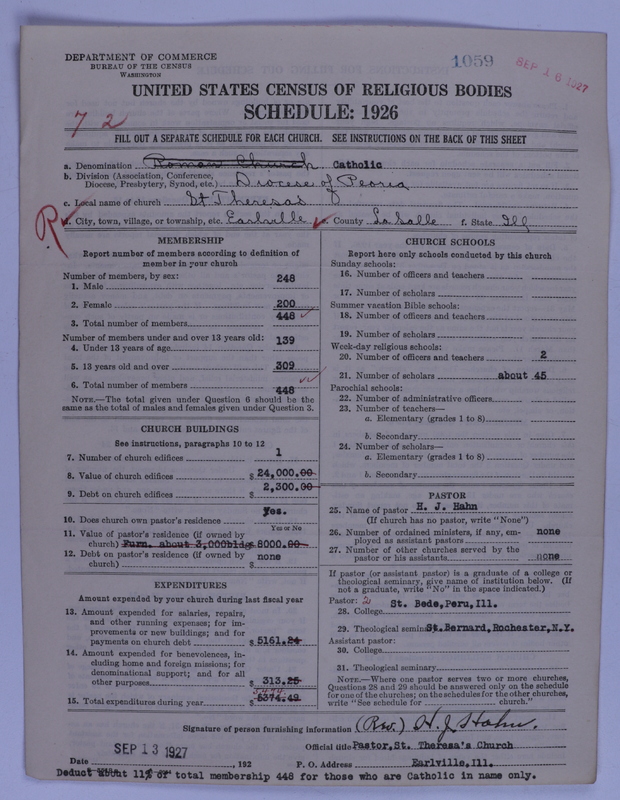 DEPARTMENT OF COMMERCE
BUREAU OF THE CENSUS
WASHINGTON
1059
SEP 16 1927
UNITED STATES CENSUS OF RELIGIOUS BODIES
SCHEDULE: 1926
7 2
FILL OUT A SEPARATE SCHEDULE FOR EACH CHURCH. SEE INSTRUCTIONS ON THE BACK OF THIS SHEET
a. Denomination Roman Church Catholic
b. Division (Association, Conference, Diocese, Presbytery, Synod, etc.) Diocese of Peoria
c. Local name of church St Theresas
R
d. City, town, village, or township, etc. Earlville e. County La Salle f. State Ill
MEMBERSHIP
Report number of members according to definition of
member in your church
Number of members, by sex:
1. Male 248
2. Female 200
3. Total number of members 448
Number of members under and over 13 years old:
4. Under 13 years of age 139
5. 13 years old and over 309
6. Total number of members 448
NOTE.—The total given under Question 6 should be the
same as the total of males and females given under Question 3.
CHURCH BUILDINGS
See instructions, paragraphs 10 to 12
7. Number of church edifices 1
8. Value of church edifices $ 24,000.00
9. Debt on church edifices $ 2,300.00
10. Does church own pastor's residence Yes.
Yes or No
11. Value of pastor's residence (if owned by
church) Furn. about 3,000bldg $ 8000.00
12. Debt on pastor's residence (if owned by
church) $ none
EXPENDITURES
Amount expended by your church during last fiscal year
13. Amount expended for salaries, repairs,
and other running expenses; for im-
provements or new buildings; and for
payments on church debt $ 5161.24
14. Amount expended for benevolences, in-
cluding home and foreign missions; for
denominational support; and for all
other purposes $ 313.25
5474
15. Total expenditures during year $ 5374.49
CHURCH SCHOOLS
Report here only schools conducted by this church
Sunday schools:
16. Number of officers and teachers
17. Number of scholars
Summer vacation Bible schools:
18. Number of officers and teachers
19. Number of scholars
Week-day religious schools:
20. Number of officers and teachers 2
21. Number of scholars about 45
Parochial schools:
22. Number of administrative officers
23. Number of teachers—
a. Elementary (grades 1 to 8)
b. Secondary
24. Number of scholars—
a. Elementary (grades 1 to 8)
b. Secondary
PASTOR
25. Name of pastor H. J. Hahn
(If church has no pastor, write "None")
26. Number of ordained ministers, if any, em-
ployed as assistant pastors none
27. Number of other churches served by the
pastor or his assistants none
If pastor (or assistant pastor) is a graduate of a college or
theological seminary, give name of institution below. (If
not a graduate, write "No" in the space indicated.)
Pastor: 2
28. College St. Bede,Peru,Ill.
29. Theological seminary St.Bernard,Rochester,N.Y.
Assistant pastor:
30. College
31. Theological seminary
NOTE.—Where one pastor serves two or more churches,
Questions 28 and 29 should be answered only on the schedule
for one of the churches; on the schedules for the other churches,
write "See schedule for church."
Signature of person furnishing information (Rev.) H. J. Hahn.
SEP 13 1927
Official title Pastor,St. Theresa's Church
Date , 192 P. O. Address Earlville,Ill.
Deduct about 11% of total membership 448 for those who are Catholic in name only.